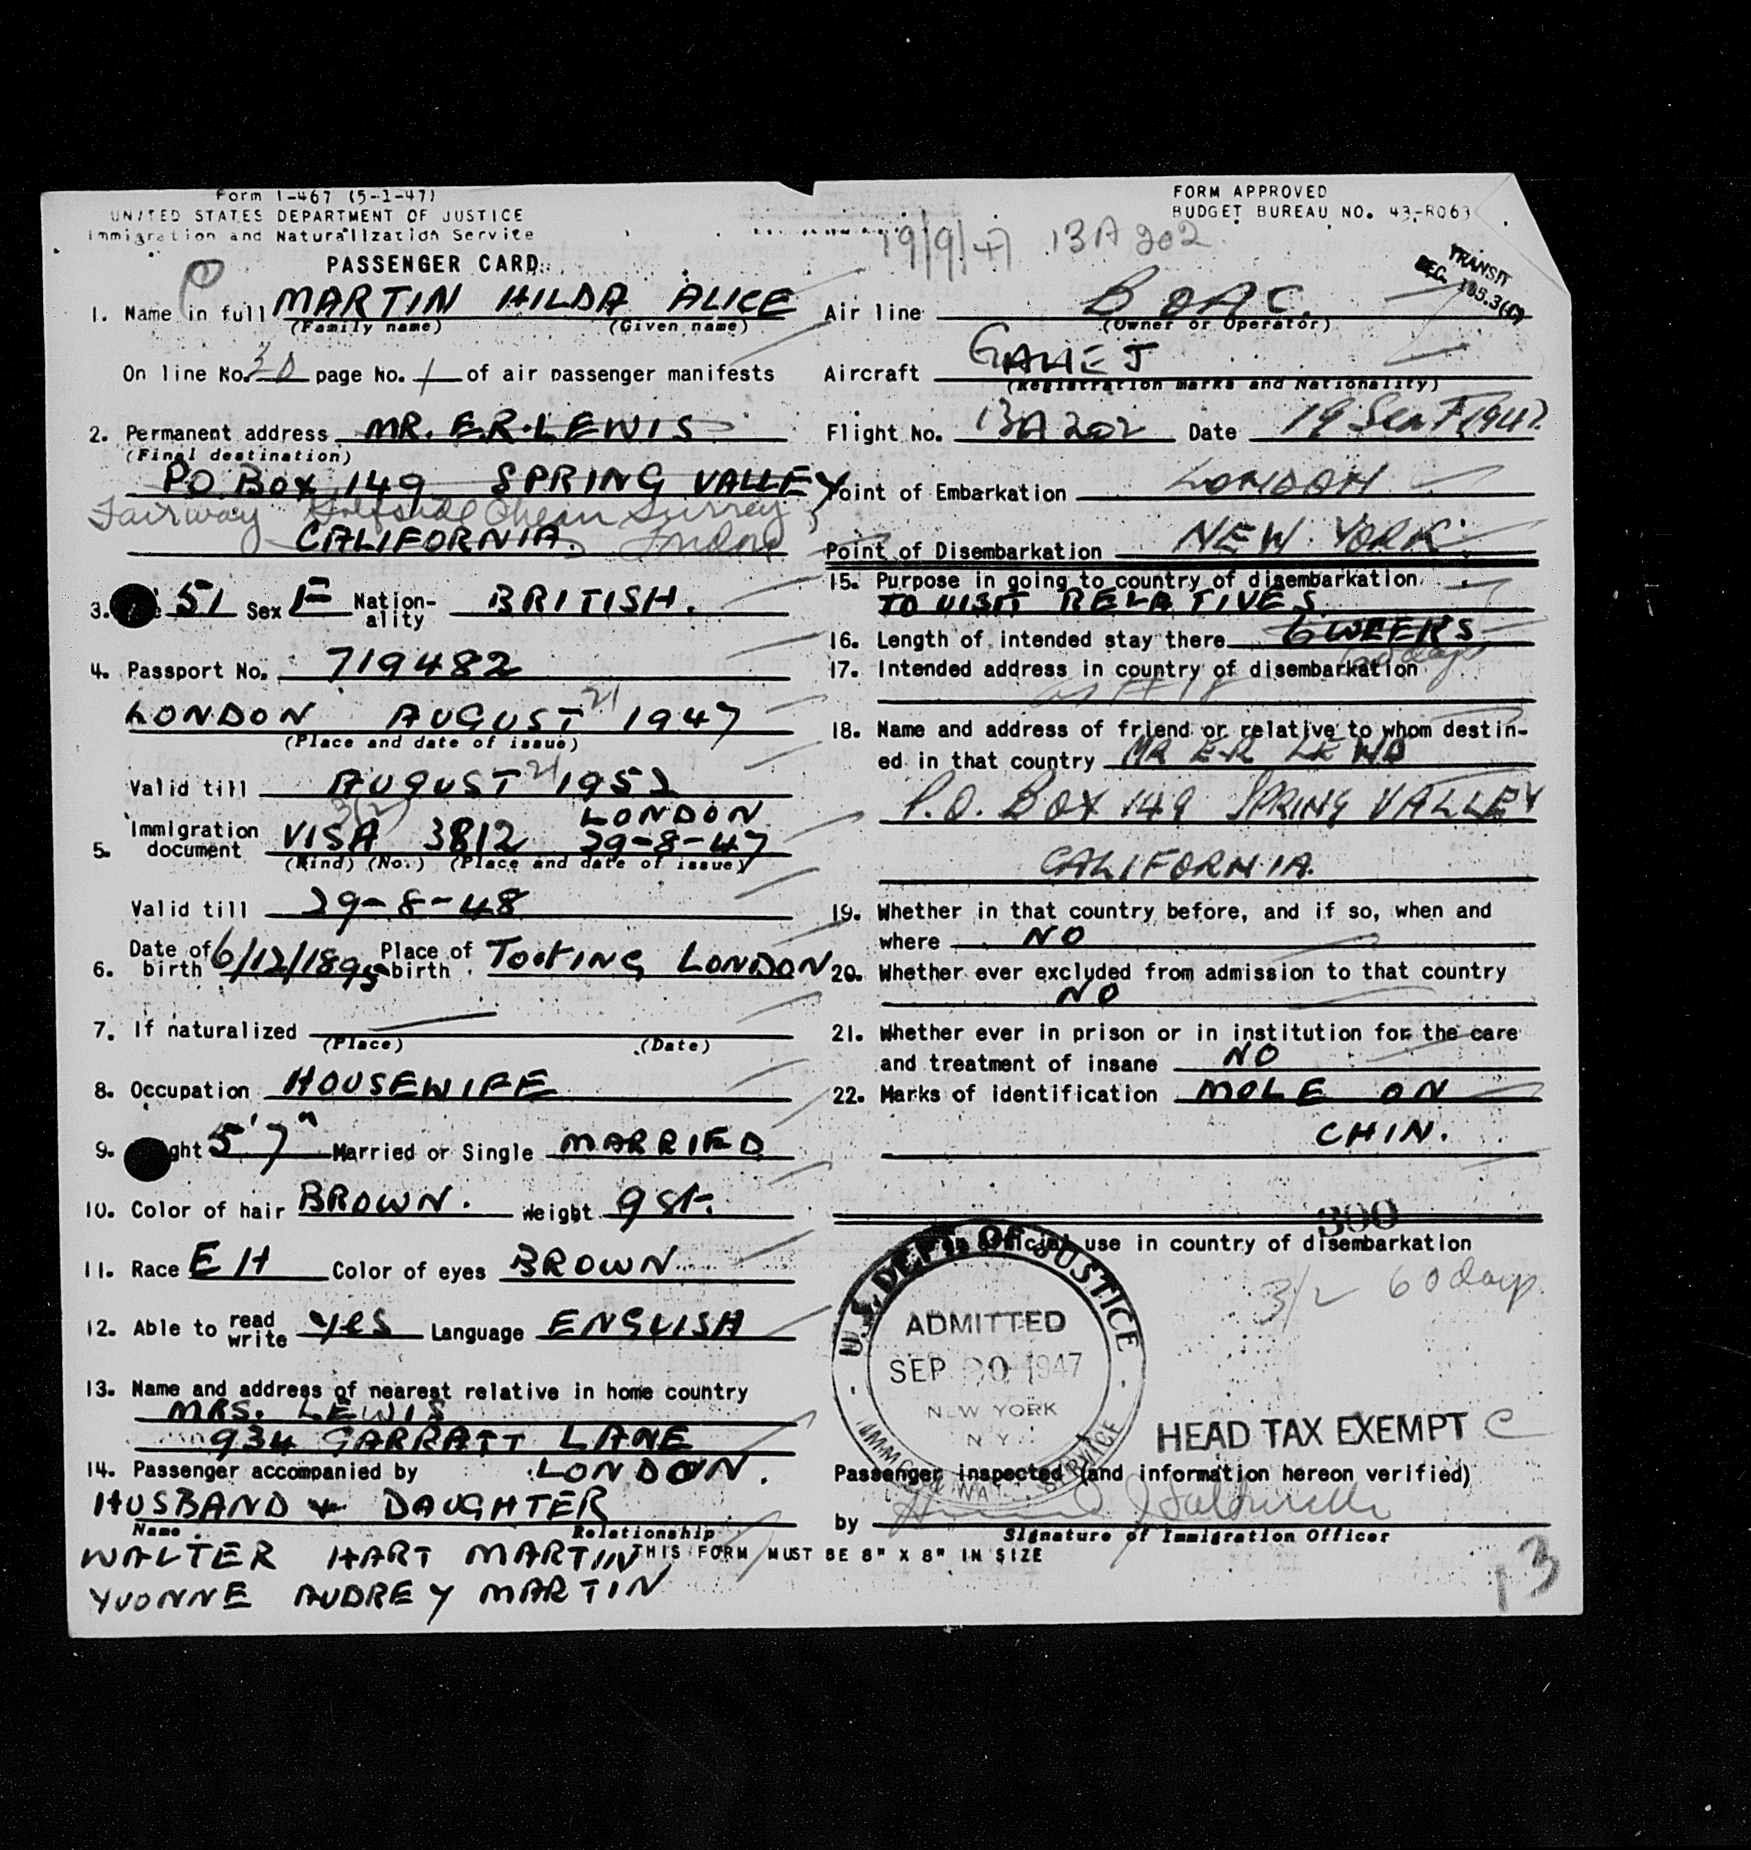 Form I-467 (5-1-47)
UNITED STATES DEPARTMENT OF JUSTICE
Immigration and Naturalization Service
FORM APPROVED
BUDGET BUREAU NO. 43-R063
19/9/47 BA 202
PASSENGER CARD
TRANSIT
1. Name in full MARTIN HILDA ALICE
(Family name) (Given name)
On line No. page No. 1 of air passenger manifests
2. Permanent address MR. E.R. LEWIS
(Final destination)
P.O. BOX 149 SPRING VALLEY
Fairway Cheam Surrey
CALIFORNIA. London
3. 51 Sex F Nation-ality BRITISH.
4. Passport No. 719482
LONDON AUGUST 21 1947
(Place and date of issue)
Valid till AUGUST 21 1952
3(2) LONDON
5. Immigration document VISA 3812 29-8-47
(Kind) (No.) (Place and date of issue)
Valid till 29-8-48
6. Date of birth 6/12/1895 Place of birth TOOTING LONDON
7. If naturalized
(Place) (Date)
8. Occupation HOUSEWIFE
9. ght 5'7" Married or Single MARRIED
10. Color of hair BROWN. Weight 9 st.
11. Race EH Color of eyes BROWN
12. Able to read write yes Language ENGLISH
13. Name and address of nearest relative in home country
MRS. LEWIS
934 GARRATT LANE
LONDON.
14. Passenger accompanied by
HUSBAND + DAUGHTER
Name Relationship
WALTER HART MARTIN
YVONNE AUDREY MARTIN
THIS FORM MUST BE 8" X 8" IN SIZE
Air line BOAC.
(Owner or Operator)
Aircraft
(Registration marks and Nationality)
Flight No. BA 202 Date 19 Sept 1947
Point of Embarkation LONDON
Point of Disembarkation NEW YORK
15. Purpose in going to country of disembarkation
TO VISIT RELATIVES
16. Length of intended stay there 6 WEEKS
60 days
17. Intended address in country of disembarkation
18. Name and address of friend or relative to whom destin-
ed in that country MR E.R LEWIS
P.O. BOX 149 SPRING VALLEY
CALIFORNIA.
19. Whether in that country before, and if so, when and
where NO
20. Whether ever excluded from admission to that country
NO
21. Whether ever in prison or in institution for the care
and treatment of insane NO
22. Marks of identification MOLE ON
CHIN.
300
official use in country of disembarkation
3/2 60 days
U.S. DEPT. OF JUSTICE
ADMITTED
SEP 20 1947
NEW YORK
N.Y.
SERVICE
HEAD TAX EXEMPT C
Passenger inspected (and information hereon verified)
by
Signature of Immigration Officer
13